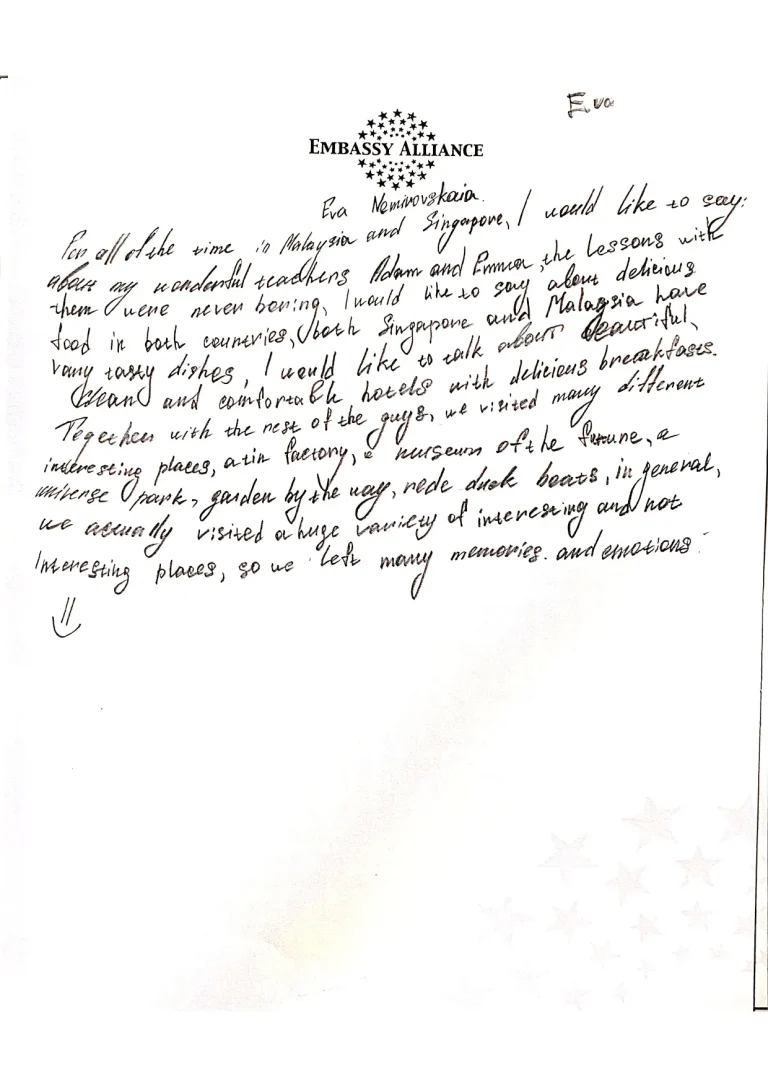 Eva
EMBASSY ALLIANCE
Eva Nemirovskaia.
For all of the time in Malaysia and Singapore, I would like to say:
about my wonderful teachers Adam and Emma, the lessons with
them were never boring, I would like to say about delicious
food in both countries, both Singapore and Malaysia have
vany tasty dishes, I would like to talk about beautiful,
clean and comfortable hotels with delicious breakfasts.
Together with the rest of the guys, we visited many different
interesting places, a tin factory, a museum of the future, a
universe park, garden by the way, rede duck boats, in general,
we actually visited a huge variety of interesting and not
Interesting places, so we left many memories. and emotions.